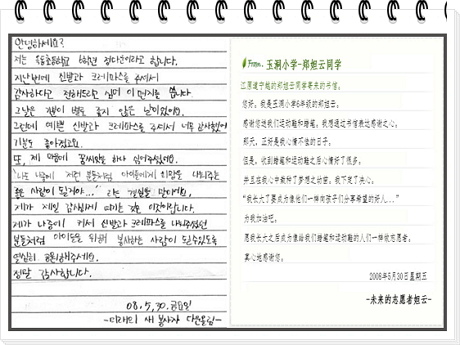 안녕하세요?
저는 옥동초등학교 6학년 정다운이라고 합니다.
지난번에 신발과 크레파스를 주셔서
감사하다고 전해드리고 싶어 이 편지를 씁니다.
그날은 별로 좋지 않은 날이었어요.
그런데 예쁜 신발과 크레파스를 주셔서 너무 감사했어요
기분도 좋아졌고요.
또, 제 마음에 꿈씨앗을 하나 심어주셨어요.
"나도 나중에 저런 분들처럼 아이들에게 희망을 나눠주는
좋은 사람이 될거야..." 라는 결심을 말이에요.
제가 제일 감사하게 여기는 것은 이것이랍니다.
제가 나중에 커서 신발과 크레파스를 나눠주셨던
분들처럼 아이들을 위해 봉사하는 사람이 될수있도록
열심히 응원해주세요.
정말 감사합니다.
08.5.30.금요일
-미래의 새 봉사자 다운올림-
From. 玉洞小学-郑妲云同学
江原道宁越的郑妲云同学寄来的书信。
您好，我是玉洞小学6年级的郑妲云。
感谢您送我们运动鞋和蜡笔。我想通过书信表达感谢之心。
那天，正好是我心情不佳的日子。
但是，收到蜡笔和运动鞋之后心情好了很多。
并且在我心中栽种了梦想之幼苗。我下定了决心。
“我长大了要成为像他们一样向孩子们分享希望的好人...”
为我加油吧。
愿我长大之后成为像给我们蜡笔和运动鞋的人们一样做志愿者。
真心地感谢您。
2008年5月30日星期五
-未来的志愿者妲云-